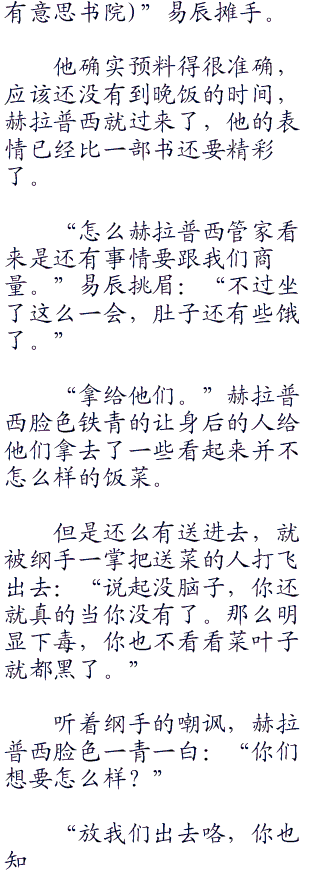 有意思书院)”易辰摊手。
他确实预料得很准确，
应该还没有到晚饭的时间，
赫拉普西就过来了，他的表
情已经比一部书还要精彩
了。
“怎么赫拉普西管家看
来是还有事情要跟我们商
量。”易辰挑眉：“不过坐
了这么一会，肚子还有些饿
了。”
“拿给他们。”赫拉普
西脸色铁青的让身后的人给
他们拿去了一些看起来并不
怎么样的饭菜。
但是还么有送进去，就
被纲手一掌把送菜的人打飞
出去：“说起没脑子，你还
就真的当你没有了。那么明
显下毒，你也不看看菜叶子
就都黑了。”
听着纲手的嘲讽，赫拉
普西脸色一青一白：“你们
想要怎么样？”
“放我们出去咯，你也
知